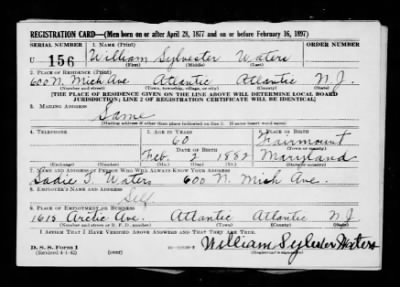 REGISTRATION CARD—(Men born on or after April 28, 1877 and on or before February 16, 1897)
SERIAL NUMBER 1. NAME (Print)
U 156 William Sylvester Waters
(First) (Middle) (Last)
2. PLACE OF RESIDENCE (Print)
600 N. Mich Ave Atlantic Atlantic N.J.
(Number and street) (Town, township, village, or city) (County) (State)
[THE PLACE OF RESIDENCE GIVEN ON THE LINE ABOVE WILL DETERMINE LOCAL BOARD
JURISDICTION; LINE 2 OF REGISTRATION CERTIFICATE WILL BE IDENTICAL]
3. MAILING ADDRESS
Same
[Mailing address if other than place indicated on line 2. If same insert word same]
4. TELEPHONE 5. AGE IN YEARS 6. PLACE OF BIRTH
60 Fairmount
DATE OF BIRTH (Town or county)
Feb. 2 1882 Maryland
(Exchange) (Number) (Mo.) (Day) (Yr.) (State or country)
7. NAME AND ADDRESS OF PERSON WHO WILL ALWAYS KNOW YOUR ADDRESS
Sadie T. Waters 600 N. Mich Ave.
8. EMPLOYER'S NAME AND ADDRESS
Self
9. PLACE OF EMPLOYMENT OR BUSINESS
1615 Arctic Ave. Atlantic Atlantic N.J.
(Number and street or R. F. D. number) (Town) (County) (State)
I AFFIRM THAT I HAVE VERIFIED ABOVE ANSWERS AND THAT THEY ARE TRUE.
D. S. S. Form 1 William Sylvester Waters
(Revised 4-1-42) (over)